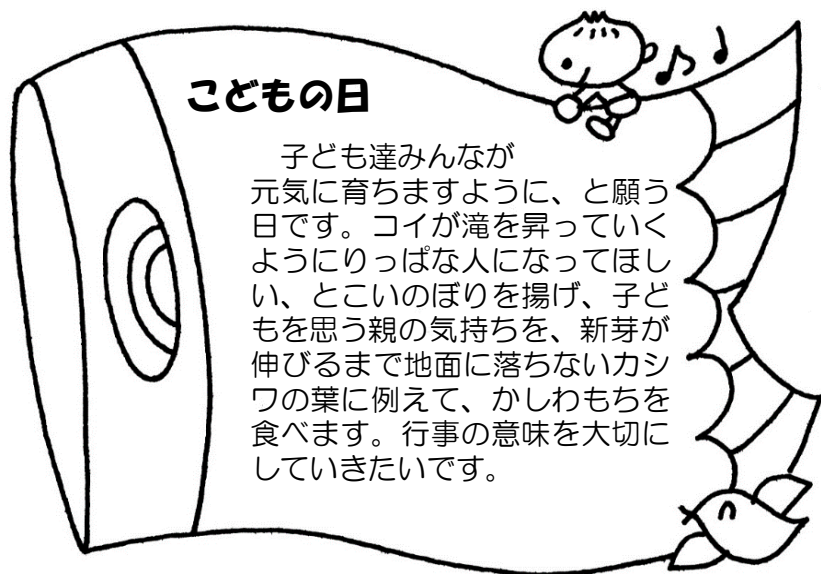 こどもの日
子ども達みんなが
元気に育ちますように、と願う
日です。コイが滝を昇っていく
ようにりっぱな人になってほし
い、とこいのぼりを揚げ、子ど
もを思う親の気持ちを、新芽が
伸びるまで地面に落ちないカシ
ワの葉に例えて、かしわもちを
食べます。行事の意味を大切に
していきたいです。